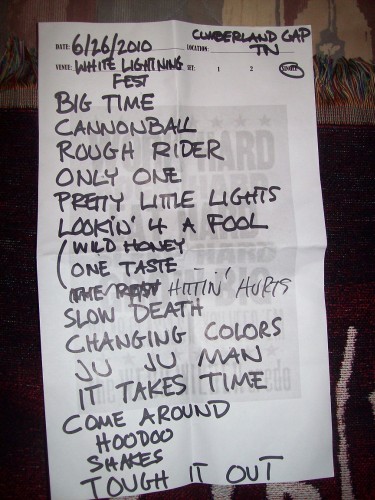 DATE: 6/26/2010 LOCATION: CUMBERLAND GAP TN
VENUE: WHITE LIGHTNING FEST SET: 1 2 SINGLE
BIG TIME
CANNONBALL
ROUGH RIDER
ONLY ONE
PRETTY LITTLE LIGHTS
LOOKIN' 4 A FOOL
WILD HONEY
ONE TASTE
THE HITTIN' HURTS
SLOW DEATH
CHANGING COLORS
JU JU MAN
IT TAKES TIME
COME AROUND
HOODOO
SHAKES
TOUGH IT OUT
HARD